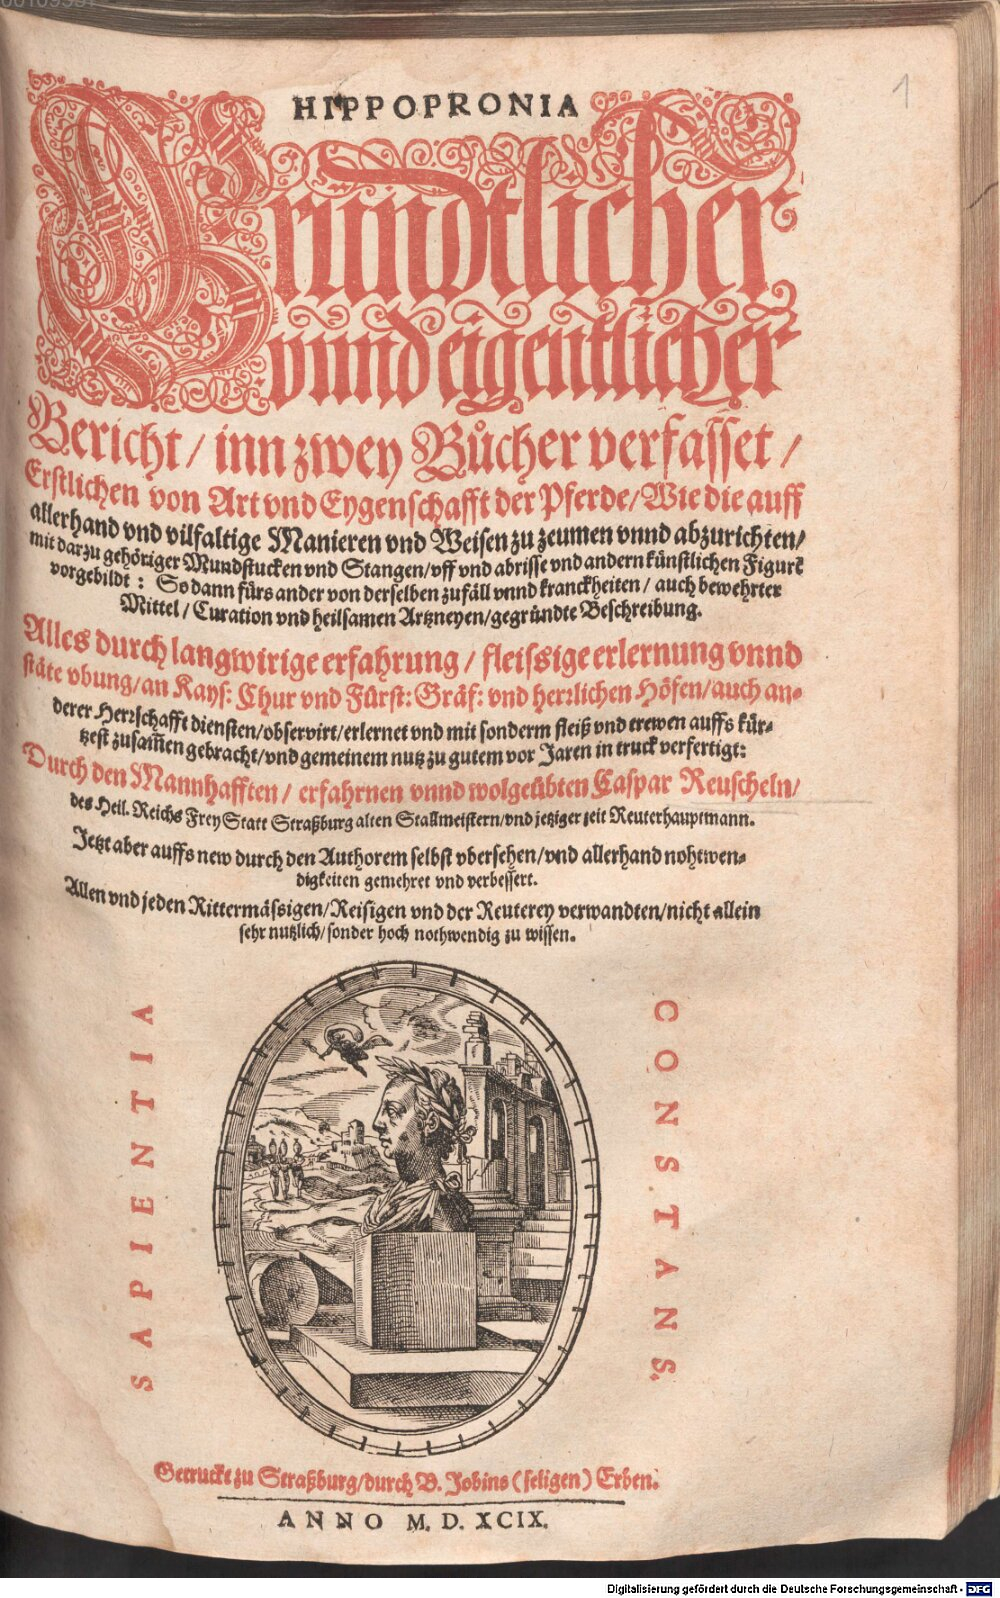 HIPPOPRONIA
Gründtlicher
vnnd eigentlicher
Bericht / inn zwey Bůcher verfasset /
Erstlichen von Art vnd Eygenschafft der Pferde / Wie die auff
allerhand vnd vilfaltige Manieren vnd Weisen zu zeumen vnnd abzurichten /
mit darzu gehöriger Mundstucken vnd Stangen / vff vnd abrisse vnd andern künstlichen Figurē
vorgebildt : So dann fürs ander von derselben zufäll vnnd kranckheiten / auch bewehrter
Mittel / Curation vnd heilsamen Artzneyen / gegründte Beschreibung.
Alles durch langwirige erfahrung / fleissige erlernung vnnd
stäte vbung / an Kays: Chur vnd Fürst: Gräf: vnd herrlichen Höfen / auch an-
derer Herrschafft diensten / observirt / erlernet vnd mit sonderm fleiß vnd trewen auffs kür-
tzest zusam̃en gebracht / vnd gemeinem nutz zu gutem vor Jaren in truck verfertigt:
Durch den Mannhafften / erfahrnen vnnd wolgeübten Caspar Reuscheln /
des Heil. Reichs Frey Statt Straßburg alten Stallmeistern / vnd jetziger zeit Reuterhauptmann.
Jetzt aber auffs new durch den Authorem selbst vbersehen / vnd allerhand nohtwen-
digkeiten gemehret vnd verbessert.
Allen vnd jeden Rittermässigen / Reisigen vnd der Reuterey verwandten / nicht allein
sehr nutzlich / sonder hoch nothwendig zu wissen.
SAPIENTIA
CONSTANS.
Getruckt zu Straßburg / durch B. Jobins (seligen) Erben.
ANNO M. D. XCIX.
1
Digitalisierung gefördert durch die Deutsche Forschungsgemeinschaft - DFG